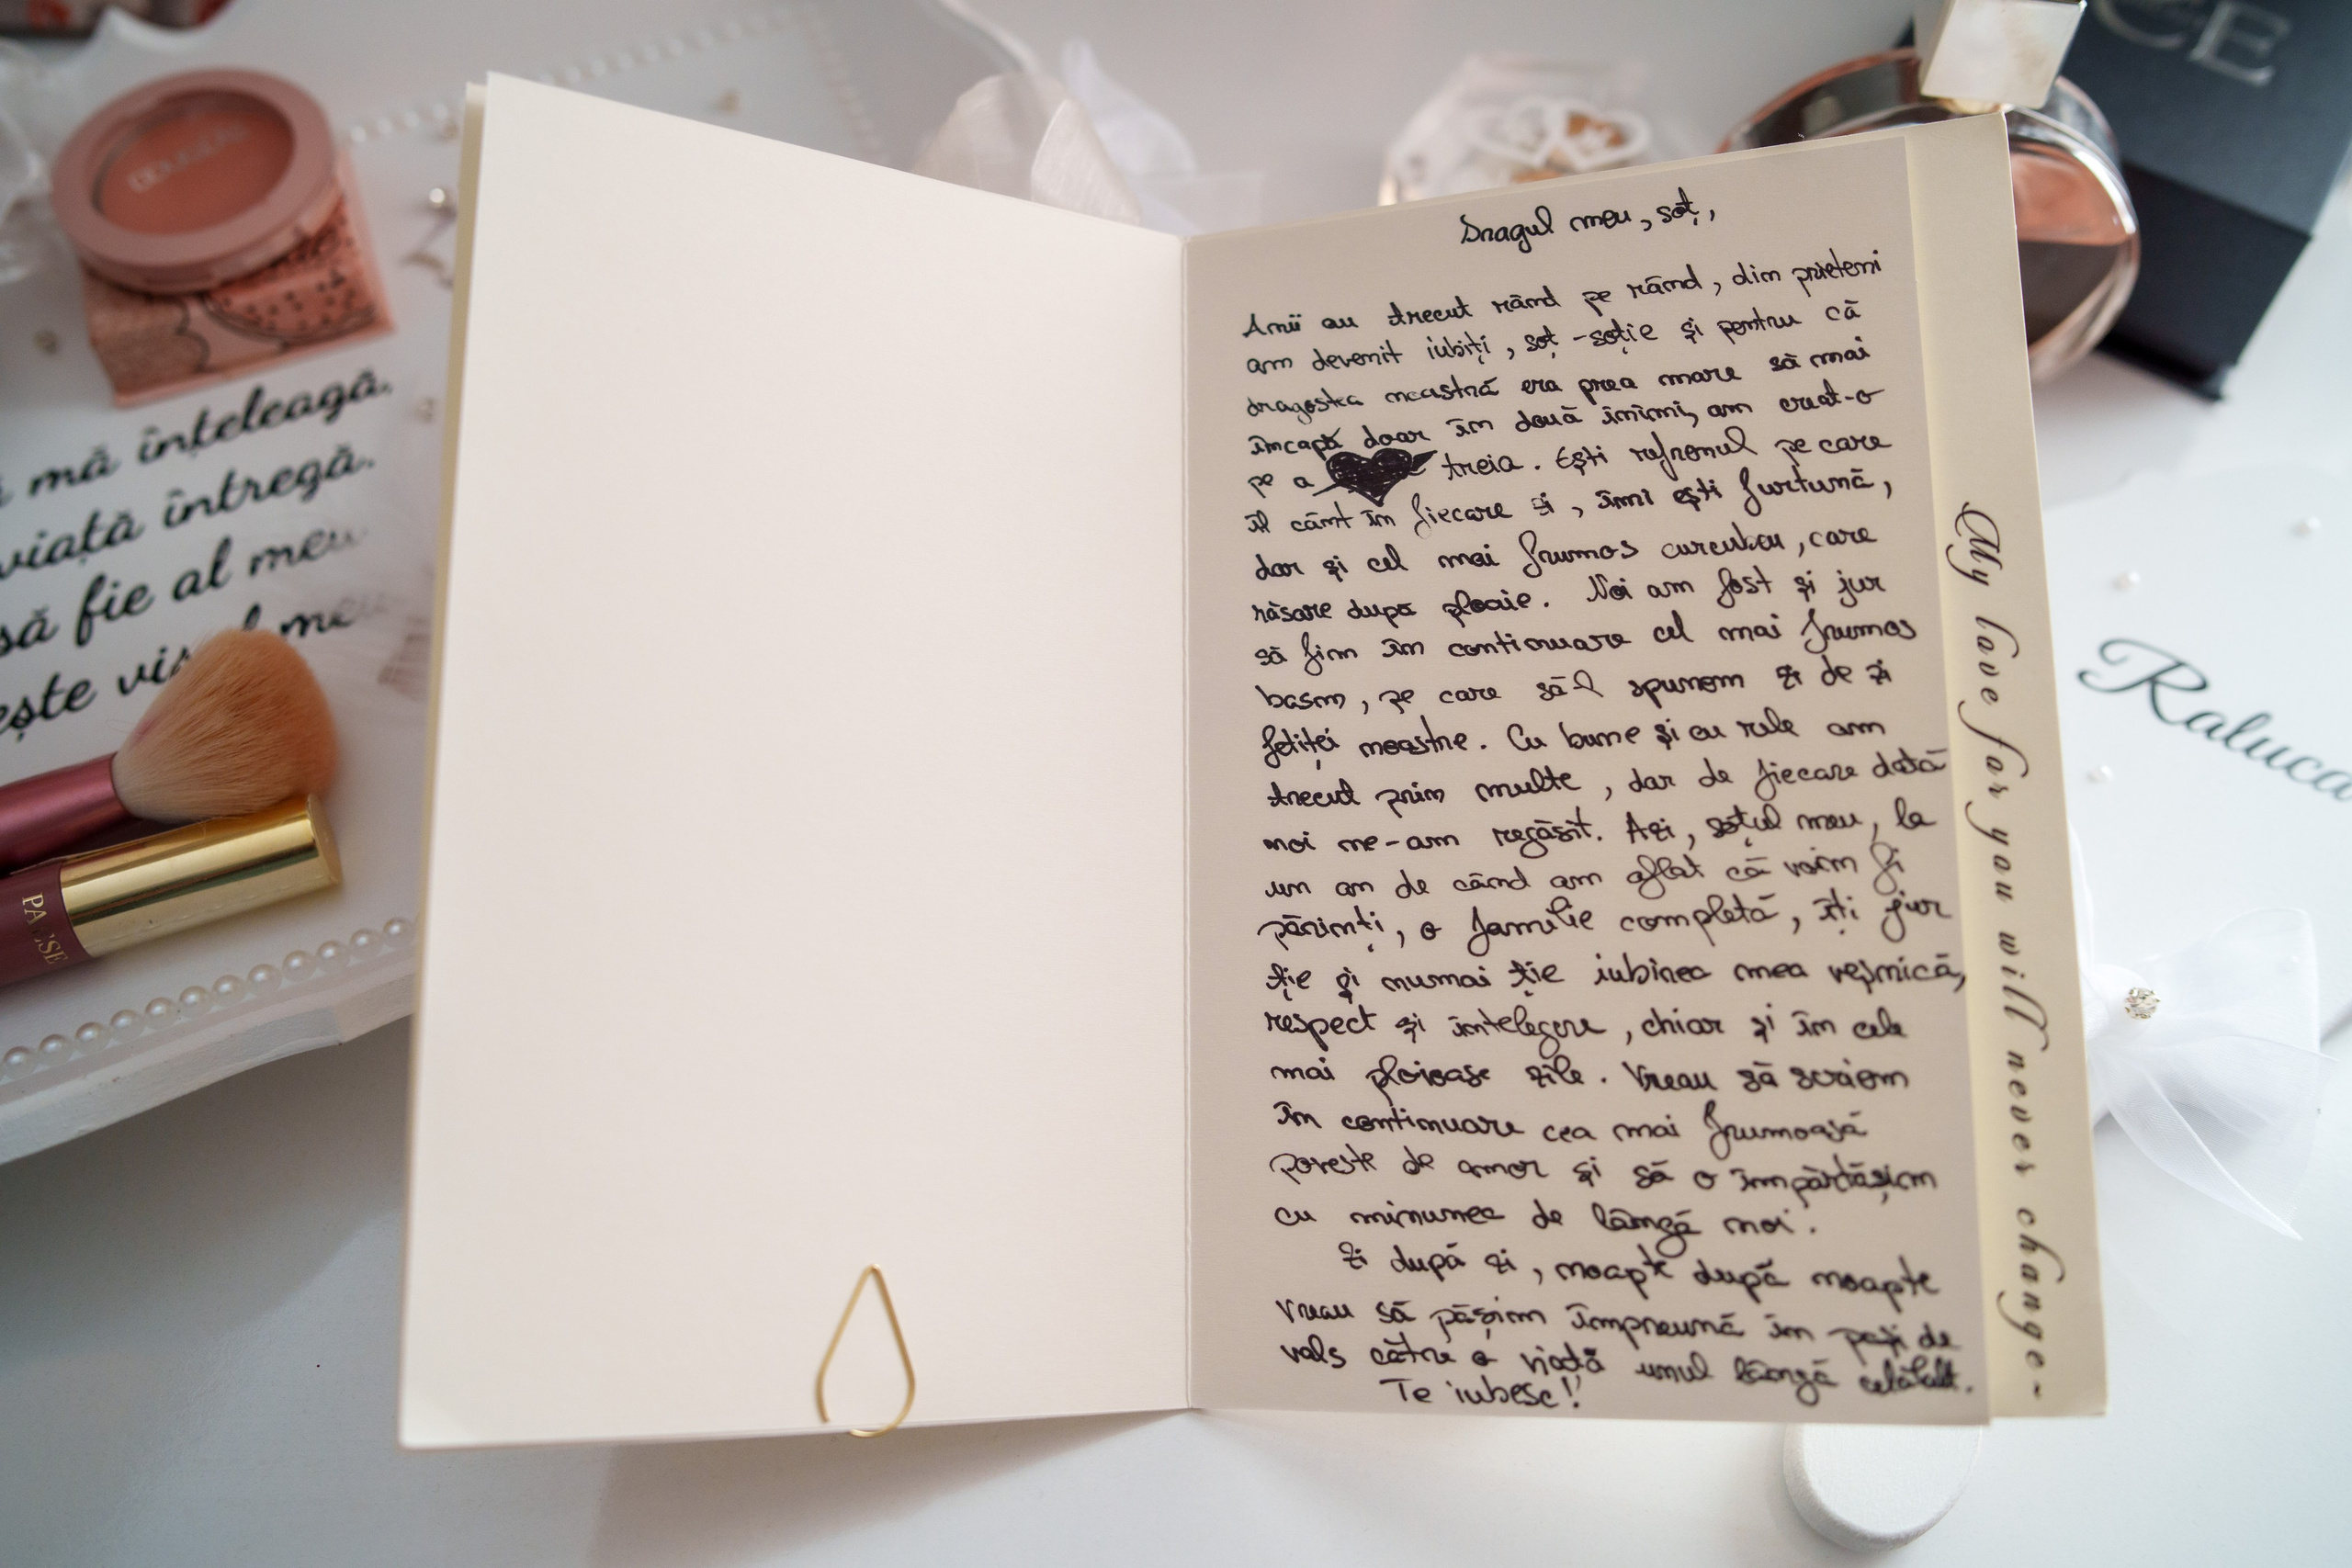 CE
mă înțeleagă,
viață întregă.
să fie al meu
ește vis l meu
PAESE
Dragul meu, soț,
Anii au trecut rând pe rând, din prieteni
am devenit iubiți, soț-soție și pentru că
dragostea noastră era prea mare să mai
încapă doar în două inimi, am creat-o
pe a treia. Ești refrenul pe care
îl cânt în fiecare zi, îmi ești furtună,
dar și cel mai frumos curcubeu, care
răsare după ploaie. Noi am fost și jur
să fim în continuare cel mai frumos
basm, pe care să-l spunem zi de zi
fetiței noastre. Cu bune și cu rele am
trecut prin multe, dar de fiecare dată
noi ne-am regăsit. Azi, soțul meu, la
un an de când am aflat că vom fi
părinți, o familie completă, îți jur
ție și numai ție iubirea mea veșnică,
respect și întelegere, chiar și în cele
mai ploioase zile. Vreau să scriem
în continuare cea mai frumoasă
poveste de amor și să o împărtășim
cu minunea de lângă noi.
Zi după zi, noapte după noapte
vreau să pășim împreună în pași de
vals către o viață unul lângă celălalt.
Te iubesc!
My love for you will never change~
Raluca